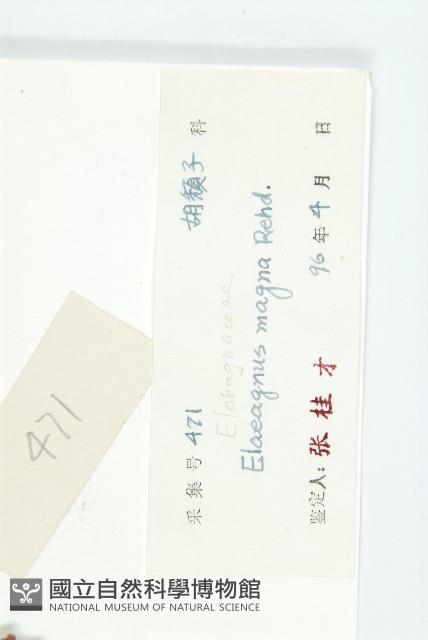 采集号 471 胡頹子 科
Elaeagnaceae
Elaeagnus magna Rehd.
鉴定人: 张桂才 96年4月 日
471
國立自然科學博物館
NATIONAL MUSEUM OF NATURAL SCIENCE